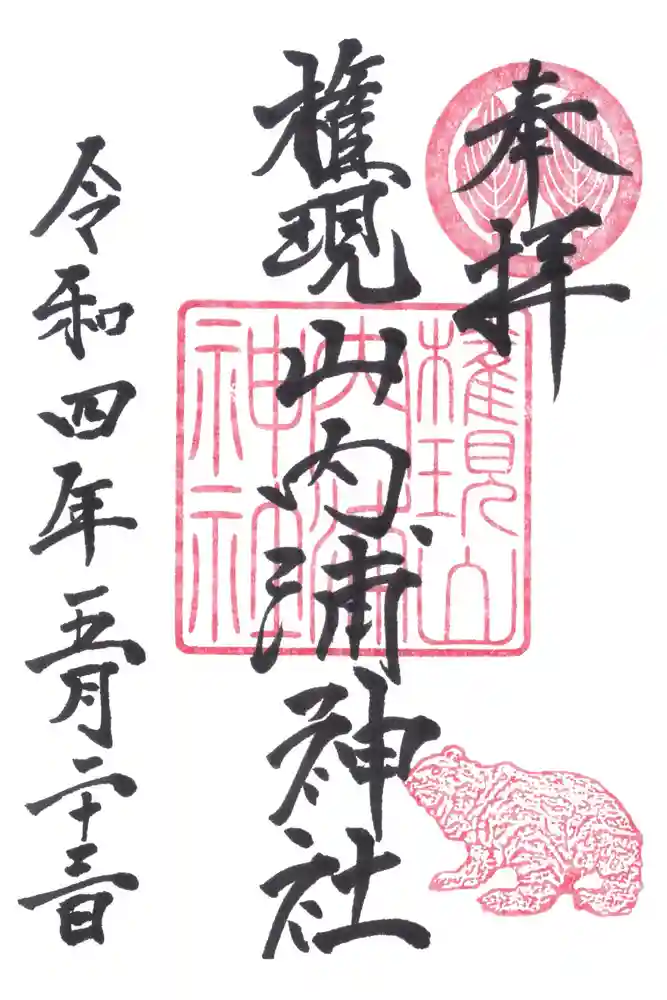 奉拝
権現山内浦神社
権現山
内浦
神社
令和四年五月二十三日